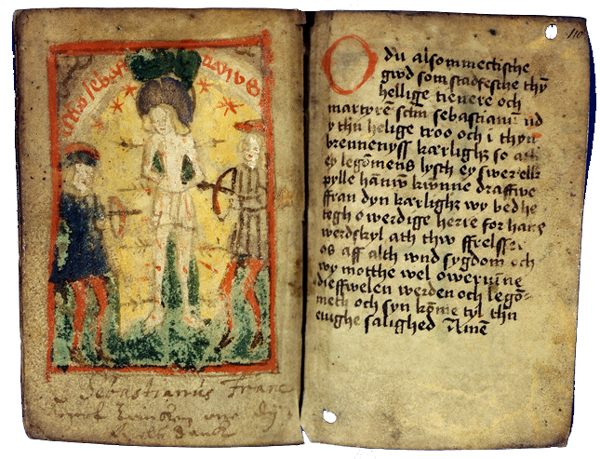 Sebastianus Franc
110
O du alsommectische
gwd som stadfesthe thyn
hellige tienere och
martyrem sctm sebastianum ud
y thn helige troo och i thyn
brennenyss kærlighz so ath
ey legomens lysth ey swerelk
pylle hanum kwnne draffwe
ffran dyn kærlighz wy bedhe
tegh owerdige herre for hans
werdskyl ath thw ffrelsse
os aff alth wnd sygdom och
wy motthe wel owerwine
dieffwelen werden och lego-
meth och syn komme tyl thn
ewighe salighed Amen